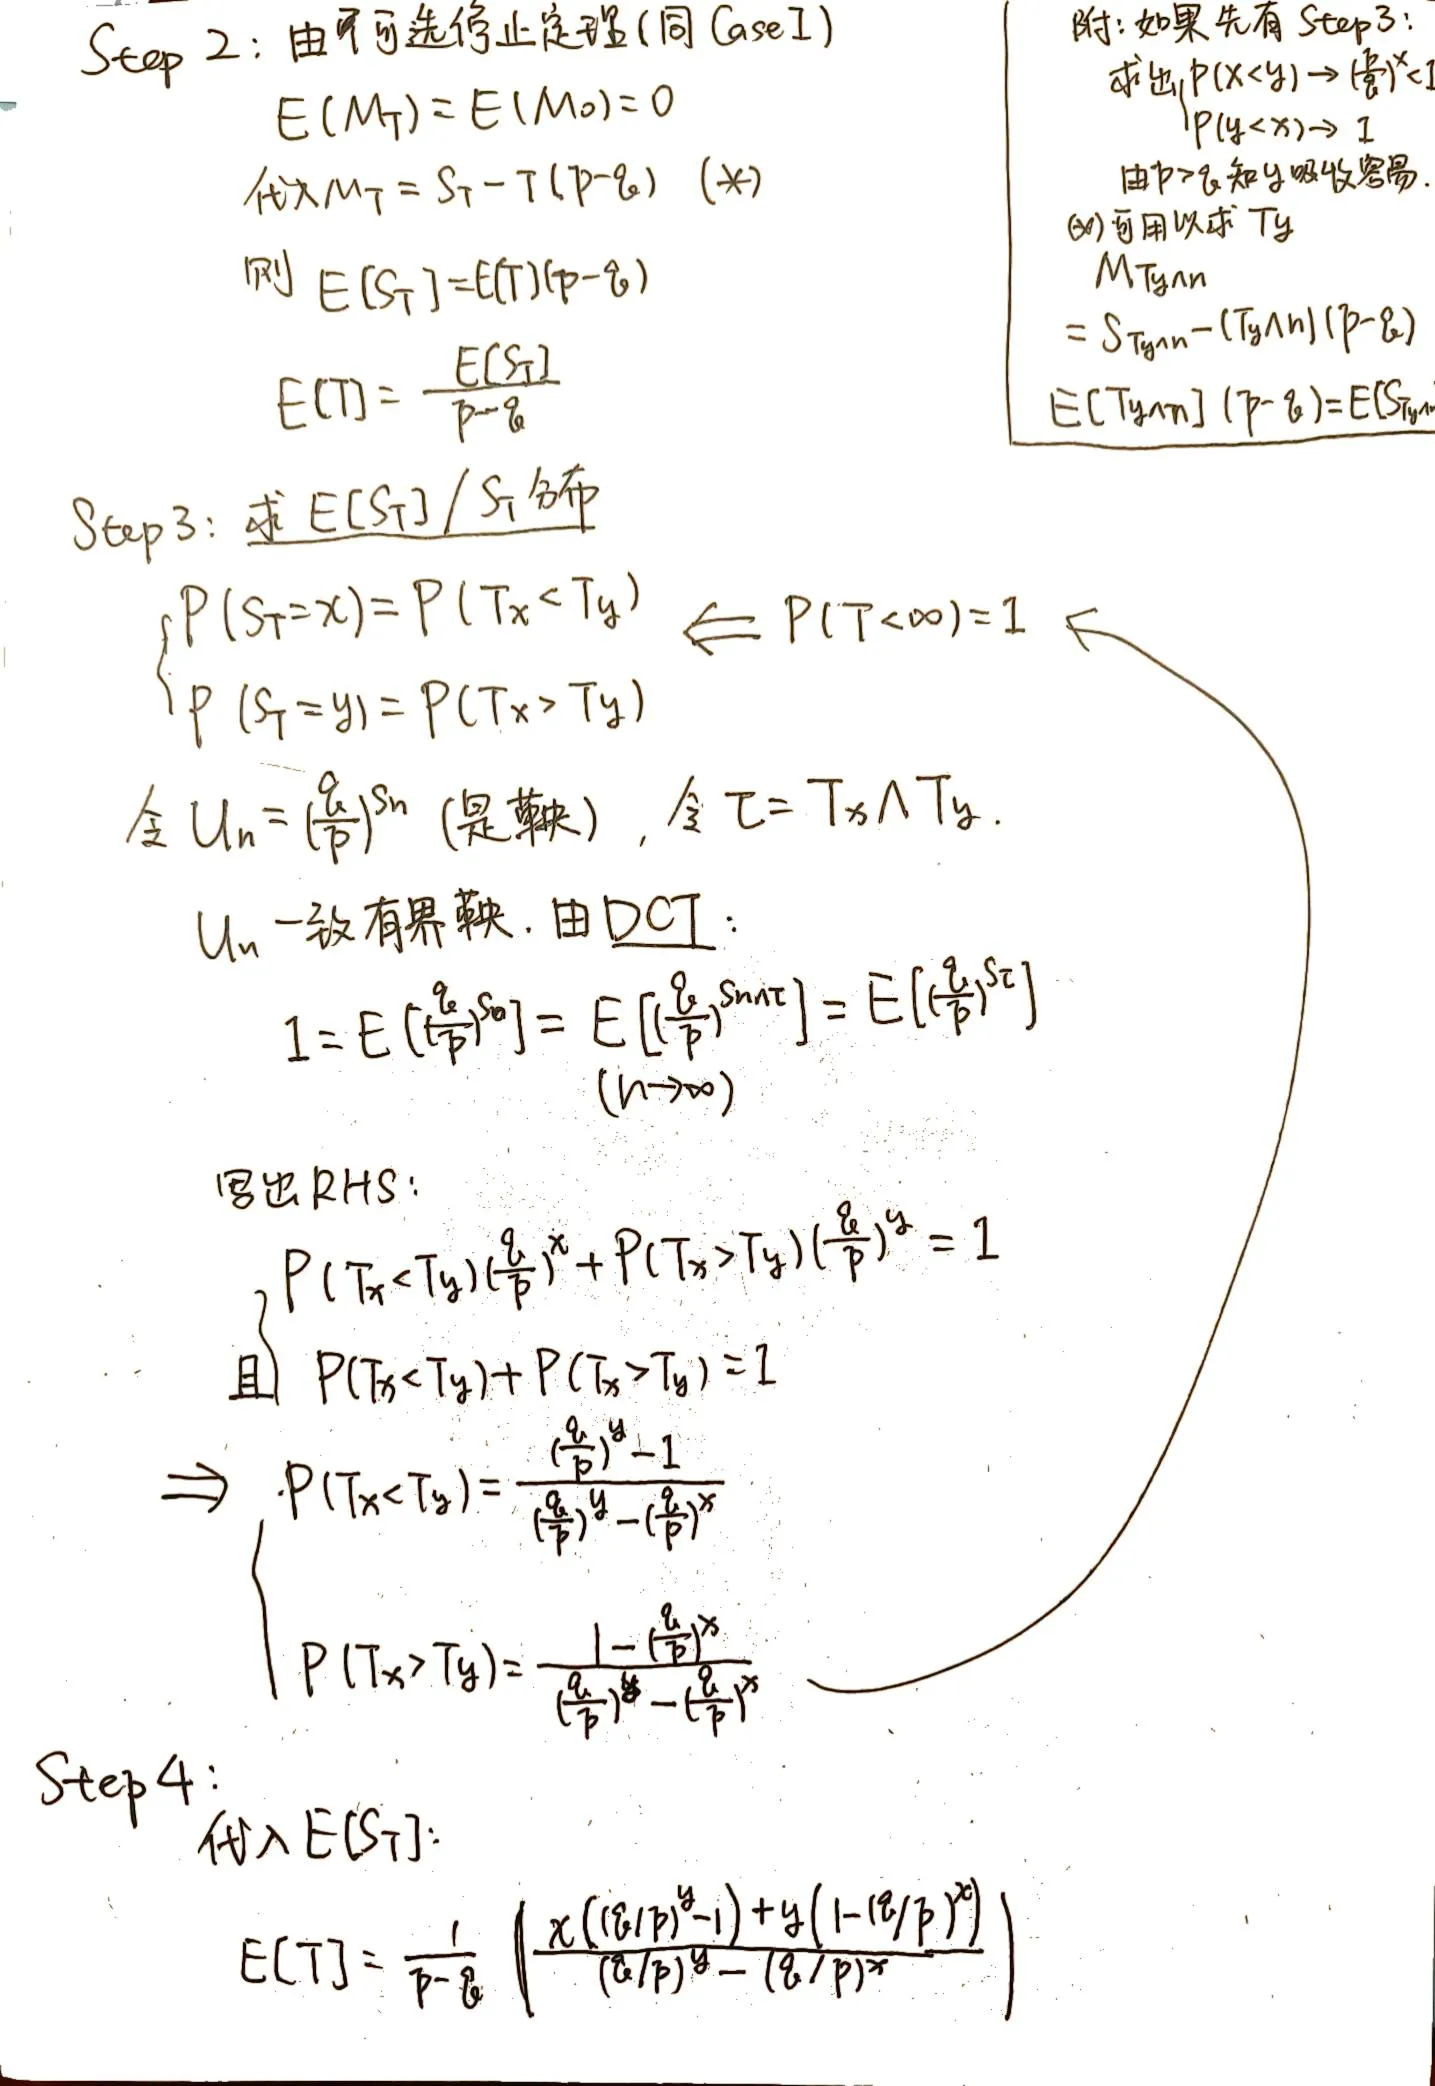 Step 2: 由可选停止定理(同Case I)
E(M_T) = E(M_0) = 0
代入M_T = S_T - T(p-q) (*)
则 E[S_T] = E(T)(p-q)
E[T] = E[S_T] / (p-q)
附: 如果先有 Step 3:
求出 P(x<y) → (p/q)^x < 1
P(y<x) → 1
由p>q知y吸收容易.
(*)可用以求 Ty
M_{Ty∧n}
= S_{Ty∧n} - (Ty∧n)(p-q)
E[Ty∧n] (p-q) = E(S_{Ty∧n}
Step 3: 求 E[S_T] / S_T 分布
P(S_T=x) = P(Tx<Ty) ⇐ P(T<∞)=1
P(S_T=y) = P(Tx>Ty)
令 U_n = (q/p)^{S_n} (是鞅), 令 τ = Tx∧Ty.
U_n 一致有界鞅. 由DCT:
1 = E[(q/p)^{S_0}] = E[(q/p)^{S_{n∧τ}}] = E[(q/p)^{S_τ}]
(n→∞)
写出RHS:
P(Tx<Ty)(q/p)^x + P(Tx>Ty)(q/p)^y = 1
且 P(Tx<Ty) + P(Tx>Ty) = 1
⇒ P(Tx<Ty) = ((q/p)^y - 1) / ((q/p)^y - (q/p)^x)
P(Tx>Ty) = (1 - (q/p)^x) / ((q/p)^y - (q/p)^x)
Step 4:
代入 E[S_T]:
E[T] = 1/(p-q) ( (x((q/p)^y - 1) + y(1 - (q/p)^x)) / ((q/p)^y - (q/p)^x) )